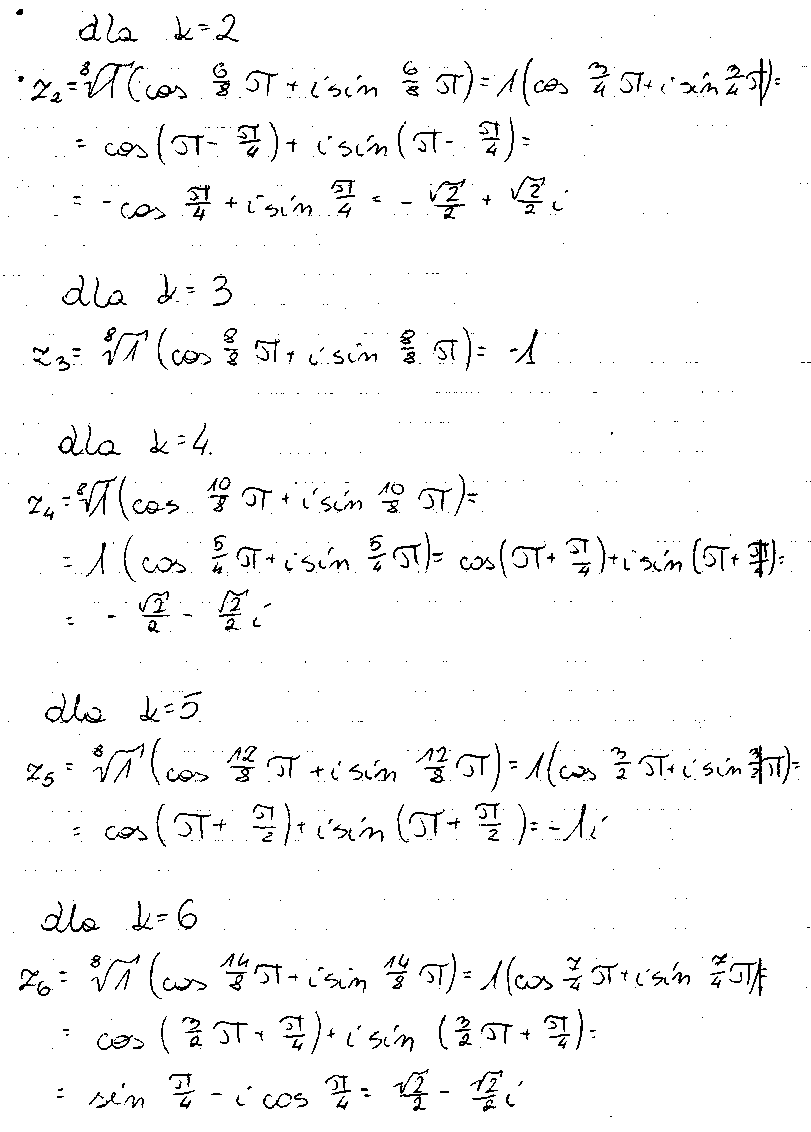 dla k=2
z₂=⁸√1(cos 6/8 π + i sin 6/8 π)=1(cos 3/4 π+i sin 3/4 π)=
= cos(π- π/4)+ i sin(π- π/4)=
= -cos π/4 + i sin π/4 = - √2/2 + √2/2 i
dla k=3
z₃= ⁸√1 (cos 8/8 π+ i sin 8/8 π)= -1
dla k=4
z₄=⁸√1(cos 10/8 π + i sin 10/8 π)=
= 1 (cos 5/4 π+i sin 5/4 π)= cos(π+ π/4)+i sin(π+ π/4)=
= - √2/2 - √2/2 i
dla k=5
z₅ = ⁸√1 (cos 12/8 π + i sin 12/8 π)=1(cos 3/2 π+i sin 3/2 π)=
= cos(π+ π/2)+i sin(π+ π/2)=-1i
dla k=6
z₆= ⁸√1 (cos 14/8 π+i sin 14/8 π)=1(cos 7/4 π+i sin 7/4 π)=
= cos (3/2 π+ π/4)+i sin (3/2 π+ π/4)=
= sin π/4 - i cos π/4 = √2/2 - √2/2 i